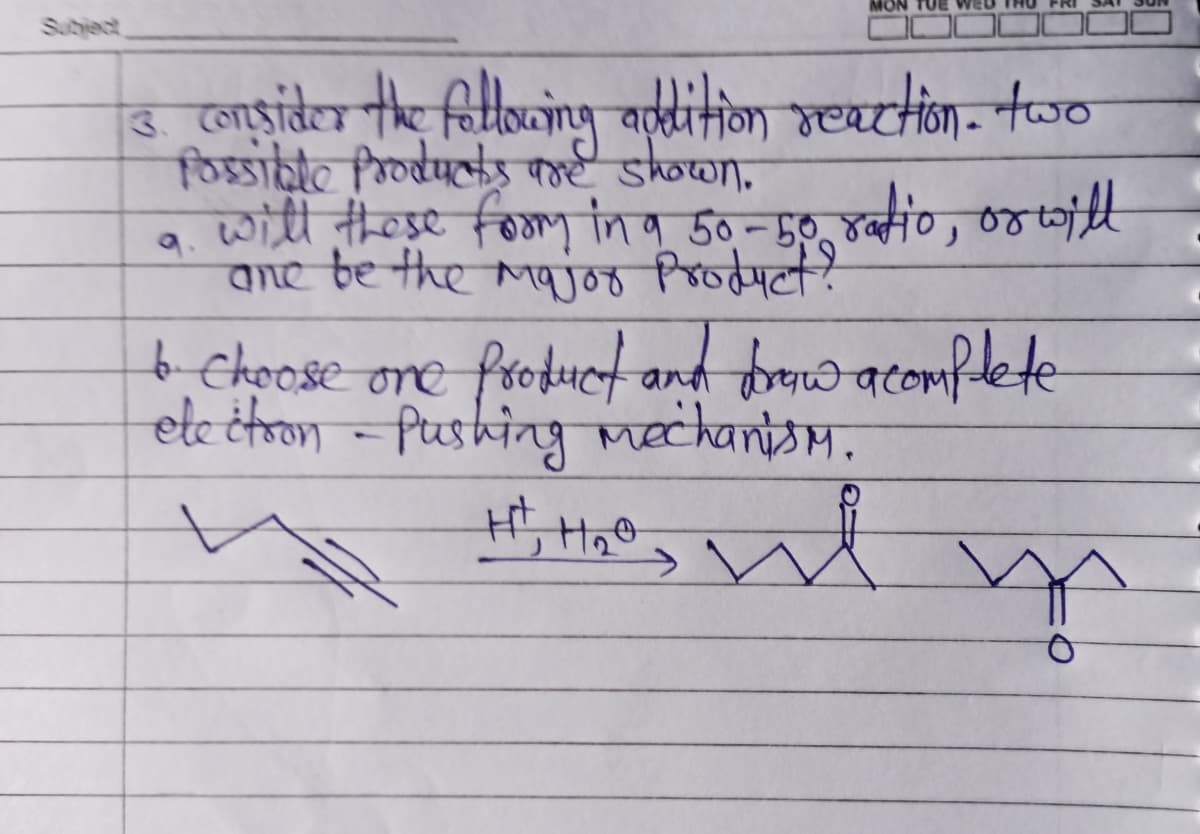 MON TUE WED THU FRI SAT SUN
Subject
3. consider the following addition reaction. two
Possible Products are shown.
a. will these form in a 50-50 ratio, or will
one be the major Product?
b. Choose one Product and draw a complete
electron - Pushing mechanism.
H+, H2O
O
O